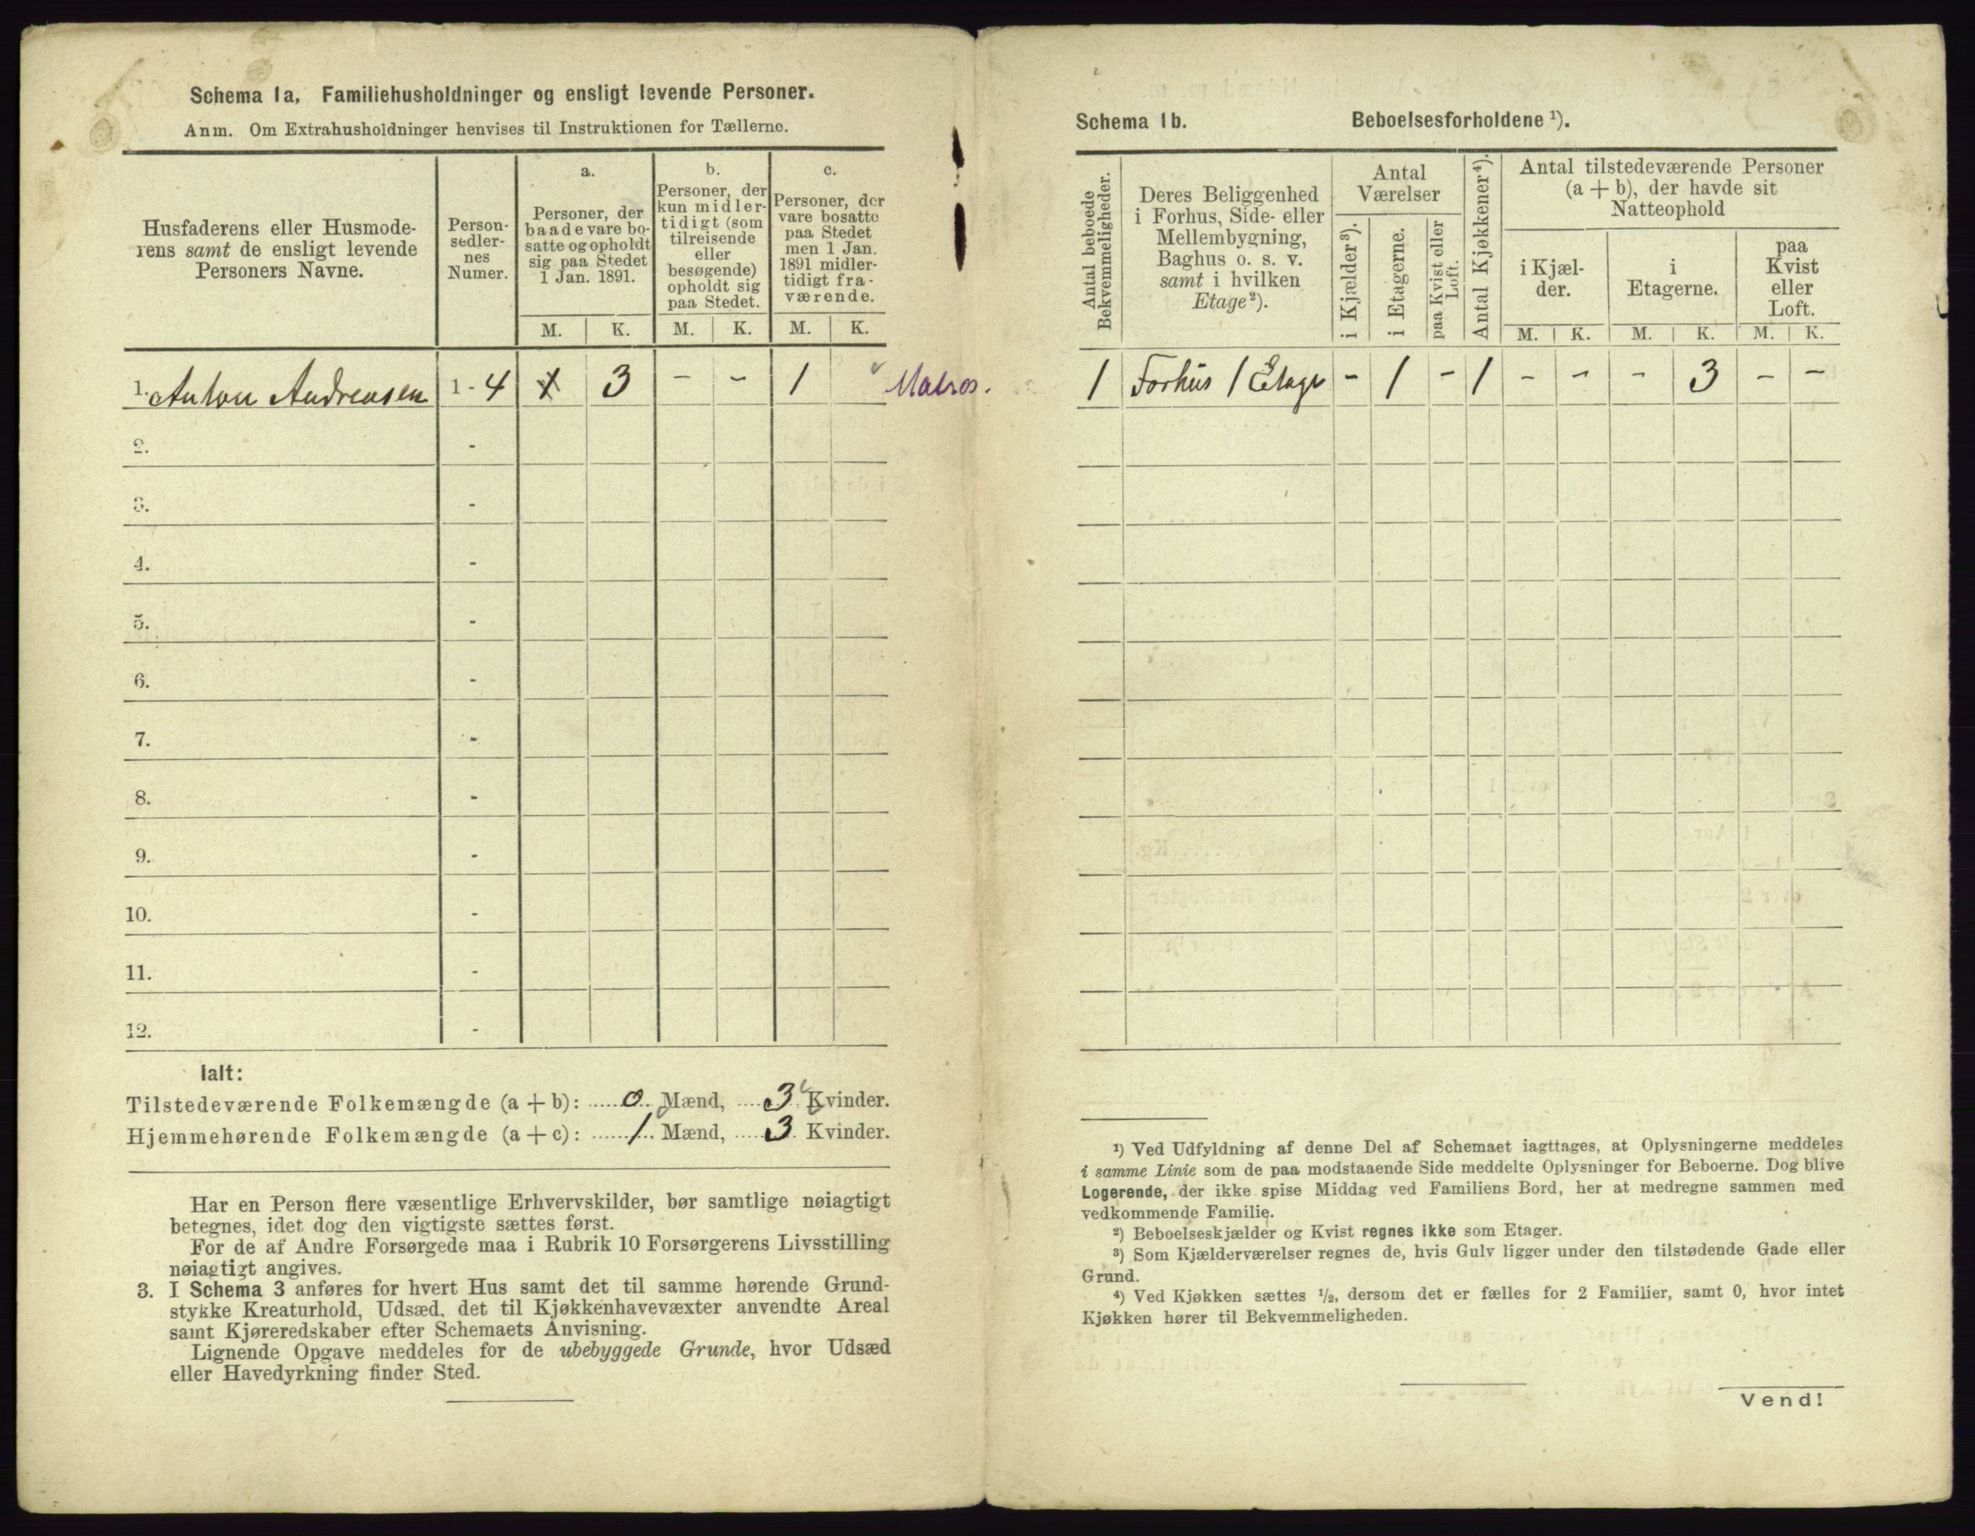 Schema 1a, Familiehusholdninger og ensligt levende Personer.
Anm. Om Extrahusholdninger henvises til Instruktionen for Tællerne.
Husfaderens eller Husmode-
rens samt de ensligt levende
Personers Navne.
Person-
sedler-
nes
Numer.
a.
Personer, der
baade vare bo-
satte og opholdt
sig paa Stedet
1 Jan. 1891.
b.
Personer, der
kun midler-
tidigt (som
tilreisende
eller
besøgende)
opholdt sig
paa Stedet.
c.
Personer, der
vare bosatte
paa Stedet
men 1 Jan.
1891 midler-
tidigt fra-
værende.
M. K. M. K. M. K.
1. Anton Andreasen 1 - 4 1 3 - - 1 Matros.
2. -
3. -
4. -
5. -
6. -
7. -
8. -
9. -
10. -
11. -
12. -
Ialt:
Tilstedeværende Folkemængde (a + b): 0 Mænd, 3 Kvinder.
Hjemmehørende Folkemængde (a + c): 1 Mænd, 3 Kvinder.
Har en Person flere væsentlige Erhvervskilder, bør samtlige nøiagtigt
betegnes, idet dog den vigtigste sættes først.
For de af Andre Forsørgede maa i Rubrik 10 Forsørgerens Livsstilling
nøiagtigt angives.
3. I Schema 3 anføres for hvert Hus samt det til samme hørende Grund-
stykke Kreaturhold, Udsæd, det til Kjøkkenhavevæxter anvendte Areal
samt Kjøreredskaber efter Schemaets Anvisning.
Lignende Opgave meddeles for de ubebyggede Grunde, hvor Udsæd
eller Havedyrkning finder Sted.
Schema 1b. Beboelsesforholdene ¹).
Antal beboede
Bekvemmeligheder.
Deres Beliggenhed
i Forhus, Side- eller
Mellembygning,
Baghus o. s. v.
samt i hvilken
Etage²).
Antal
Værelser
i Kjælder³).
i Etagerne.
paa Kvist eller
Loft.
Antal Kjøkkener⁴).
Antal tilstedeværende Personer
(a + b), der havde sit
Natteophold
i Kjæl-
der.
i
Etagerne.
paa
Kvist
eller
Loft.
M. K. M. K. M. K.
1 Forhus 1 Etage - 1 - 1 - - - 3 - -
¹) Ved Udfyldning af denne Del af Schemaet iagttages, at Oplysningerne meddeles
i samme Linie som de paa modstaaende Side meddelte Oplysninger for Beboerne. Dog blive
Logerende, der ikke spise Middag ved Familiens Bord, her at medregne sammen med
vedkommende Familie.
²) Beboelseskjælder og Kvist regnes ikke som Etager.
³) Som Kjælderværelser regnes de, hvis Gulv ligger under den tilstødende Gade eller
Grund.
⁴) Ved Kjøkken sættes ½, dersom det er fælles for 2 Familier, samt 0, hvor intet
Kjøkken hører til Bekvemmeligheden.
Vend!